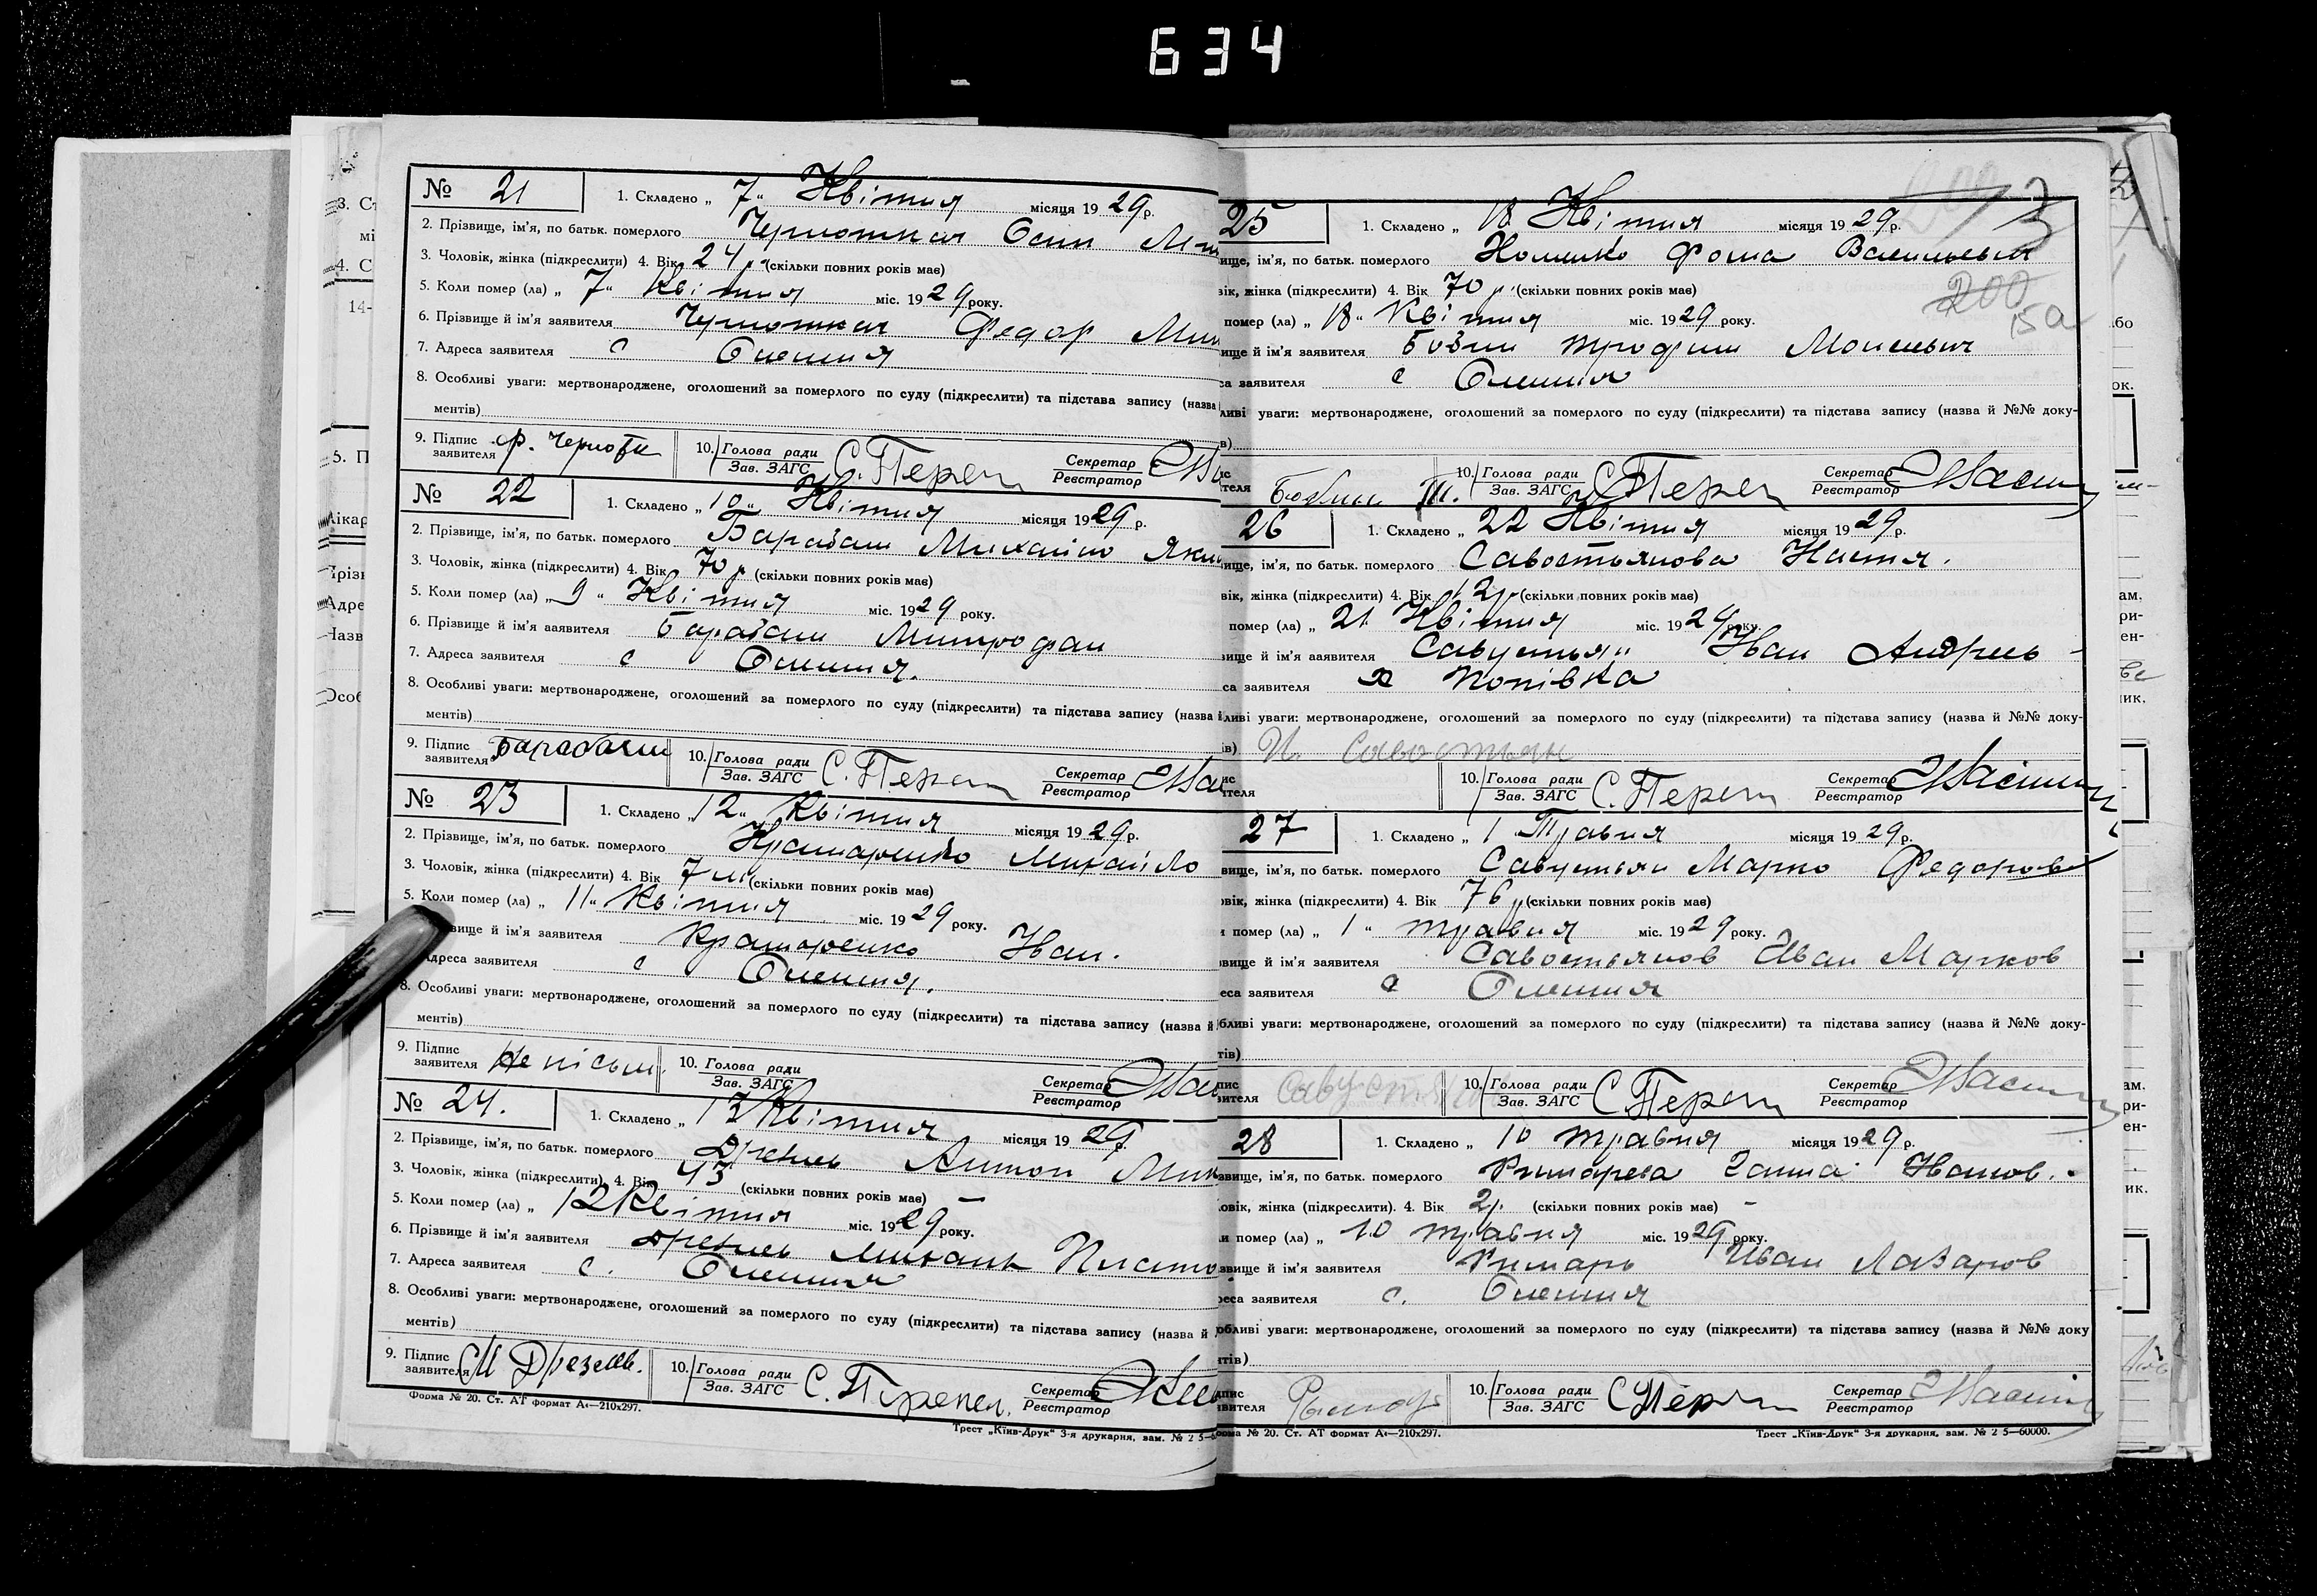 634
№ 21
1. Складено „ 7 “ Квітня місяця 1929 р.
2. Прізвище, ім'я, по батьк. померлого
3. Чоловік, жінка (підкреслити) 4. Вік 24 р (скільки повних років має)
5. Коли помер (ла) „ 7 “ Квітня міс. 1929 року.
6. Прізвище й ім'я заявителя Федор
7. Адреса заявителя с Олешня
8. Особливі уваги: мертвонароджене, оголошений за померлого по суду (підкреслити) та підстава запису (назва
ментів)
9. Підпис заявителя Ф. 10. Голова ради Зав. ЗАГС С. Переп Секретар Реєстратор
№ 22
1. Складено „ 10 “ Квітня місяця 1929 р.
2. Прізвище, ім'я, по батьк. померлого Барабаш Михайло Яким
3. Чоловік, жінка (підкреслити) 4. Вік 70 р (скільки повних років має)
5. Коли помер (ла) „ 9 “ Квітня міс. 1929 року.
6. Прізвище й ім'я заявителя Барабаш Митрофан
7. Адреса заявителя с Олешня.
8. Особливі уваги: мертвонароджене, оголошений за померлого по суду (підкреслити) та підстава запису (назва
ментів)
9. Підпис заявителя Барабаш 10. Голова ради Зав. ЗАГС С. Переп Секретар Реєстратор
№ 23
1. Складено „ 12 “ Квітня місяця 1929 р.
2. Прізвище, ім'я, по батьк. померлого Крамаренко Михайло
3. Чоловік, жінка (підкреслити) 4. Вік 7 м (скільки повних років має)
5. Коли помер (ла) „ 11 “ Квітня міс. 1929 року.
вище й ім'я заявителя Крамаренко Іван.
дреса заявителя с Олешня.
8. Особливі уваги: мертвонароджене, оголошений за померлого по суду (підкреслити) та підстава запису (назва й
ментів)
9. Підпис заявителя Не письм. 10. Голова ради Зав. ЗАГС Секретар Реєстратор
№ 24.
1. Складено „ 13 Квітня місяця 1929
2. Прізвище, ім'я, по батьк. померлого Антон
3. Чоловік, жінка (підкреслити) 4. Вік 43 (скільки повних років має) –
5. Коли помер (ла) „ 12 Квітня міс. 1929 року.
6. Прізвище й ім'я заявителя
7. Адреса заявителя с. Олешня
8. Особливі уваги: мертвонароджене, оголошений за померлого по суду (підкреслити) та підстава запису (назва й
ментів)
9. Підпис заявителя 10. Голова ради Зав. ЗАГС С. Перепел. Секретар Реєстратор
Форма № 20. Ст. АТ формат А4—210х297.
Трест „Київ-Друк“ 3-я друкарня, зам. № 2 5—
25
1. Складено „ 18 Квітня місяця 1929 р.
ище, ім'я, по батьк. померлого Фома Васильевич
вік, жінка (підкреслити) 4. Вік 70 р (скільки повних років має)
200
15а
помер (ла) „ 18 “ Квітня міс. 1929 року.
ище й ім'я заявителя Трофим Моисеевич
са заявителя с Олешня
ливі уваги: мертвонароджене, оголошений за померлого по суду (підкреслити) та підстава запису (назва й №№ доку-
в)
10. Голова ради Зав. ЗАГС С Переп Секретар Реєстратор
26
1. Складено „ 22 Квітня місяця 1929 р.
ище, ім'я, по батьк. померлого Савостьянова Настя.
вік, жінка (підкреслити) 4. Вік 12 р (скільки повних років має)
помер (ла) „ 21 Квітня міс. 1929 року.
вище й ім'я заявителя Савустьян Иван Андреев
са заявителя х Попівка
ливі уваги: мертвонароджене, оголошений за померлого по суду (підкреслити) та підстава запису (назва й №№ доку-
ів) И. Савостьян
10. Голова ради Зав. ЗАГС С. Переп Секретар Реєстратор
27
1. Складено „ 1 Травня місяця 1929 р.
вище, ім'я, по батьк. померлого Савустьян Марко Федоров
вік, жінка (підкреслити) 4. Вік 76 р (скільки повних років має)
помер (ла) „ 1 “ травня міс. 1929 року.
вище й ім'я заявителя Савостьянов Иван Марков
еса заявителя с Олешня
бливі уваги: мертвонароджене, оголошений за померлого по суду (підкреслити) та підстава запису (назва й №№ доку-
тів)
пис вителя 10. Голова ради Зав. ЗАГС С Переп Секретар Реєстратор
28
1. Складено „ 10 травня місяця 1929 р.
вище, ім'я, по батьк. померлого
овік, жінка (підкреслити). 4. Вік 2 р. (скільки повних років має) –
и помер (ла) „ 10 травня міс. 1929 року.
звище й ім'я заявителя Римарь Иван Лазаров
реса заявителя с. Олешня
обливі уваги: мертвонароджене, оголошений за померлого по суду (підкреслити) та підстава запису (назва й №№ доку
нтів)
дпис явителя 10. Голова ради Зав. ЗАГС С Переп Секретар Реєстратор
орма № 20. Ст. АТ формат А4—210х297.
Трест „Київ-Друк“ 3-я друкарня, зам. № 2 5—60000.